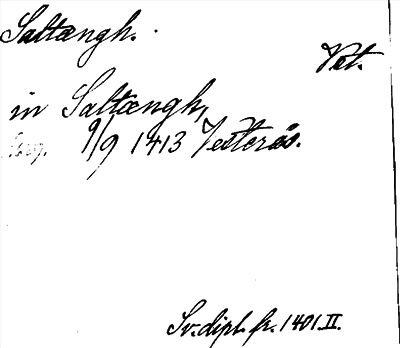 Saltængh.
Vet.
in Saltængh,
9/9 1413 Vesterås.
Sv. dipl. fr. 1401 II.